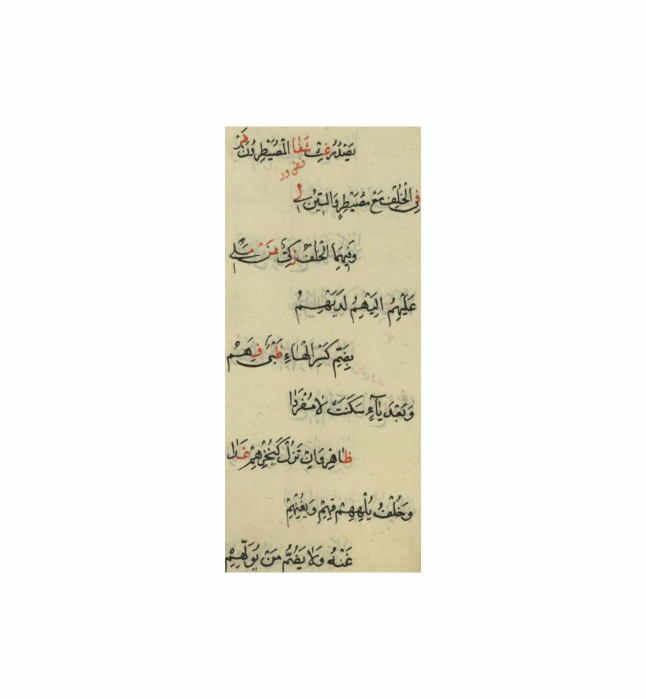 يَصْدُرُ غِثْ شَفَا الْمُصَيْطِرُونَ ضَرْ
فِي الْخُلْفِ مَعْ مُصَيْطِرٍ وَالسِّينُ لِي
وَفِيهِمَا الْخُلْفُ زَكِيٌّ عَنْ مَلِي
عَلَيْهِمُ إِلَيْهِمُ لَدَيْهِمُ
بِضَمِّ كَسْرِ الْهَاءِ ظَبْيٌ فَهِمُ
وَبَعْدَ يَاءٍ سَكَنَتْ لَا مُفْرَدَا
ظَاهِرْ وَإِنْ تَزُلْ كَيُخْزِهِمْ غَدَا
وَخُلْفُ يُلْهِهِمْ قِهِمْ وَيُغْنِهِمْ
عَنْهُ وَلَا يَضُمُّ مَنْ يُوَلِّهِمْ